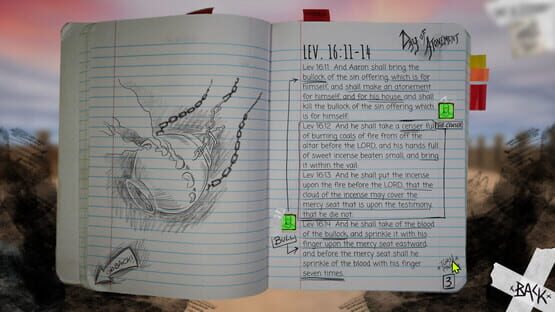 Day of Atonement
LEV. 16:11-14
Lev 16:11 And Aaron shall bring the
bullock of the sin offering, which is for
himself, and shall make an atonement
for himself, and for his house, and shall
kill the bullock of the sin offering which
is for himself:
Lev 16:12 And he shall take a censer full
of burning coals of fire from off the
altar before the LORD, and his hands full
of sweet incense beaten small, and bring
it within the vail:
Lev 16:13 And he shall put the incense
upon the fire before the LORD, that the
cloud of the incense may cover the
mercy seat that is upon the testimony,
that he die not:
Lev 16:14 And he shall take of the blood
of the bullock, and sprinkle it with his
finger upon the mercy seat eastward;
and before the mercy seat shall he
sprinkle of the blood with his finger
seven times.
BULL
3
BACK